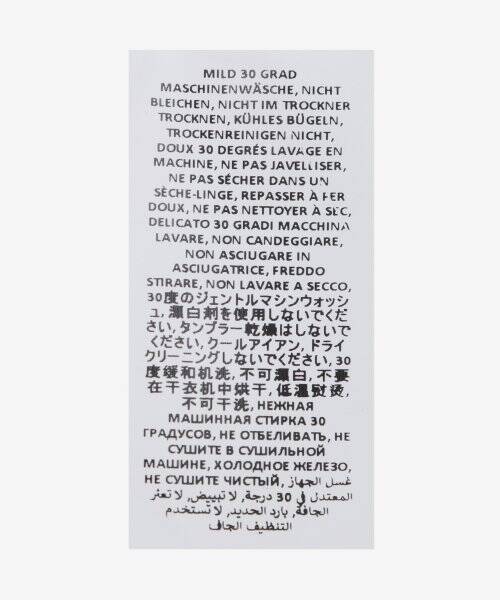 MILD 30 GRAD
MASCHINENWÄSCHE, NICHT
BLEICHEN, NICHT IM TROCKNER
TROCKNEN, KÜHLES BÜGELN,
TROCKENREINIGEN NICHT,
DOUX 30 DEGRÉS LAVAGE EN
MACHINE, NE PAS JAVELLISER,
NE PAS SÉCHER DANS UN
SÈCHE-LINGE, REPASSER À FER
DOUX, NE PAS NETTOYER À SEC,
DELICATO 30 GRADI MACCHINA
LAVARE, NON CANDEGGIARE,
NON ASCIUGARE IN
ASCIUGATRICE, FREDDO
STIRARE, NON LAVARE A SECCO,
30度のジェントルマシンウォッシ
ュ, 漂白剤を使用しないでくだ
さい, タンブラー乾燥はしないで
ください, クールアイアン, ドライ
クリーニングしないでください, 30
度缓和机洗, 不可漂白, 不要
在干衣机中烘干, 低温熨烫,
不可干洗, НЕЖНАЯ
МАШИННАЯ СТИРКА 30
ГРАДУСОВ, НЕ ОТБЕЛИВАТЬ, НЕ
СУШИТЕ В СУШИЛЬНОЙ
МАШИНЕ, ХОЛОДНОЕ ЖЕЛЕЗО,
НЕ СУШИТЕ ЧИСТЫЙ, غسل الجهاز
المعتدل في 30 درجة, لا تبييض, لا تعثر
الجافة, بارد الحديد, لا تستخدم
التنظيف الجاف